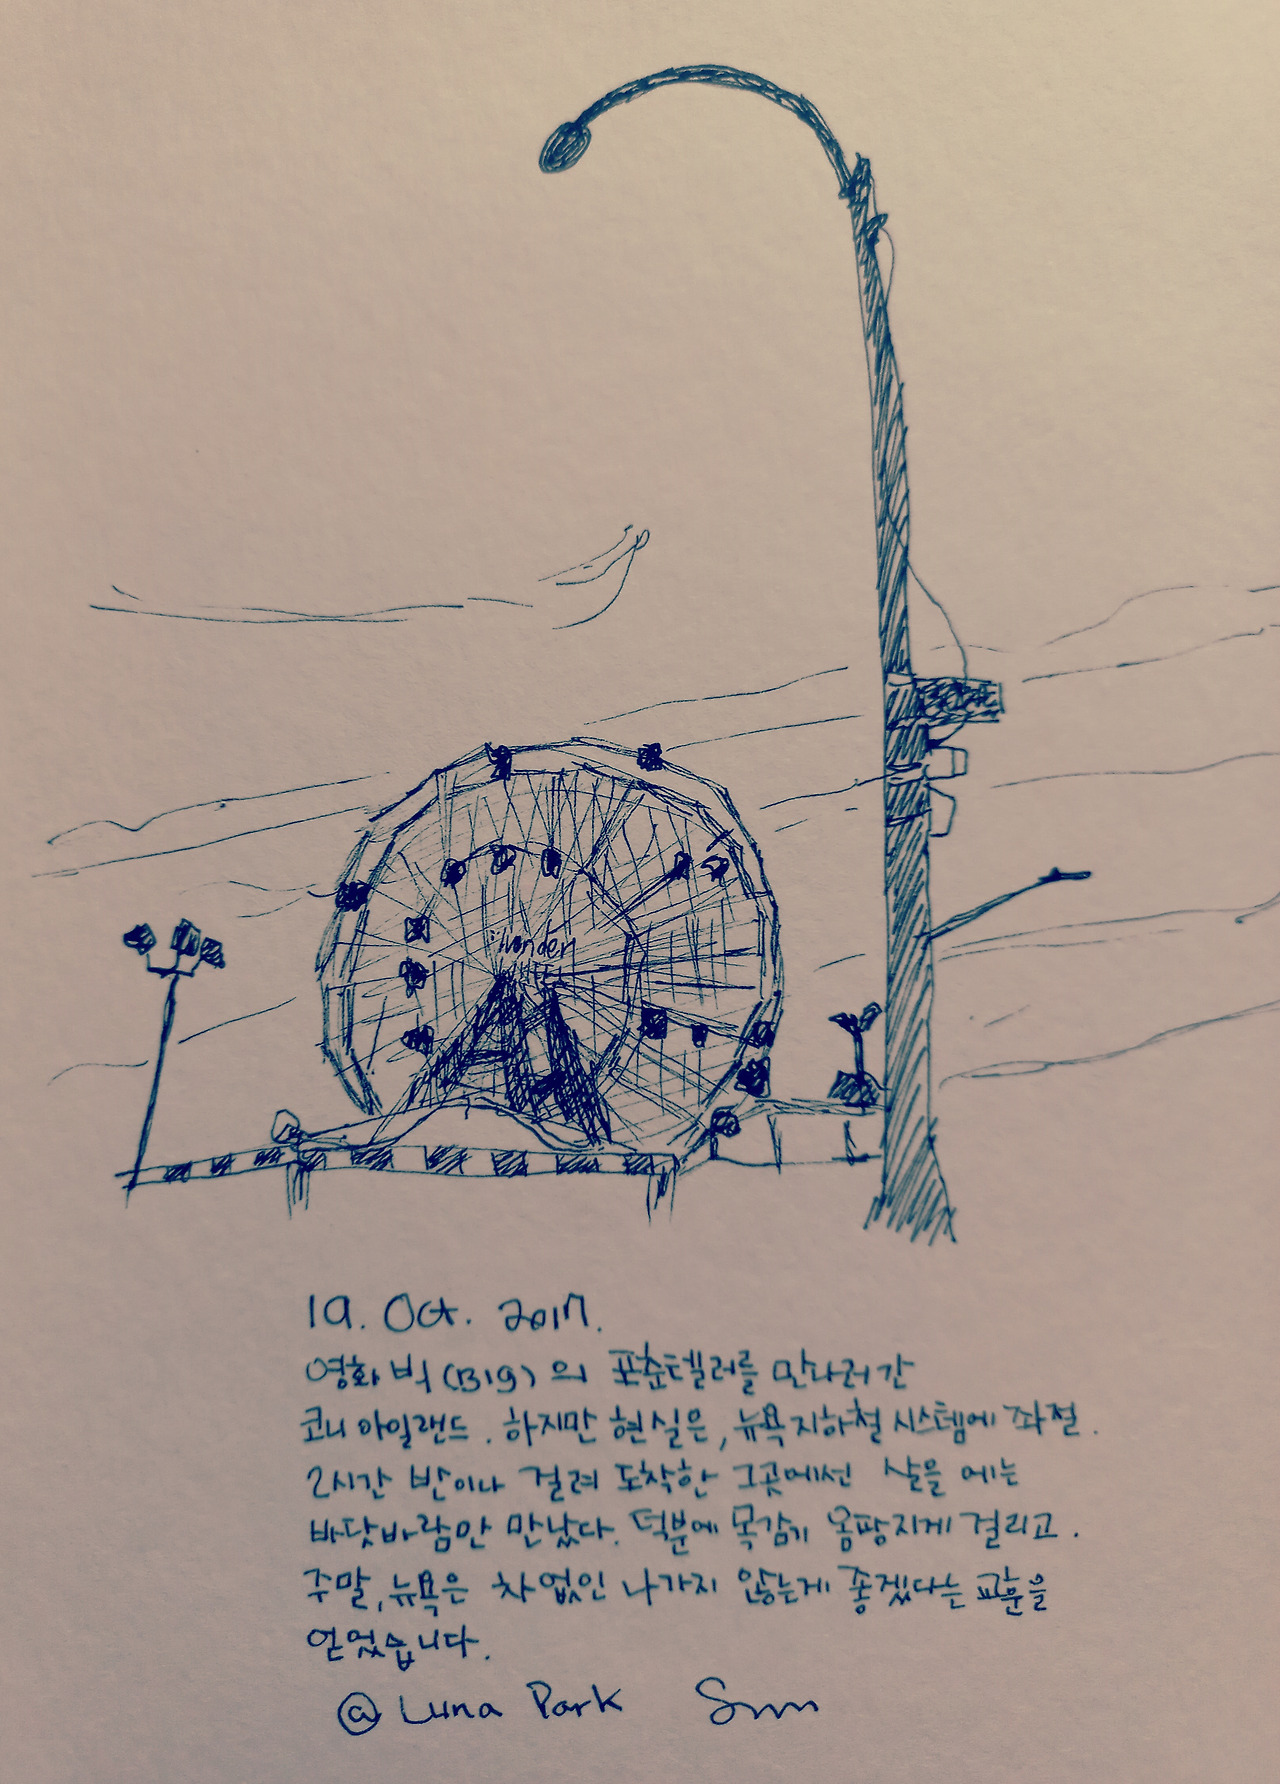 Wonder
WHEEL
19. Oct. 2017.
영화 빅(BIG)의 포춘텔러를 만나러 간
코니 아일랜드. 하지만 현실은, 뉴욕 지하철 시스템에 좌절.
2시간 반이나 걸려 도착한 그곳에선 살을 에는
바닷바람만 만났다. 덕분에 목감기 옴팡지게 걸리고.
주말, 뉴욕은 차 없인 나가지 않는게 좋겠다는 교훈을
얻었습니다.
@ Luna Park Sun